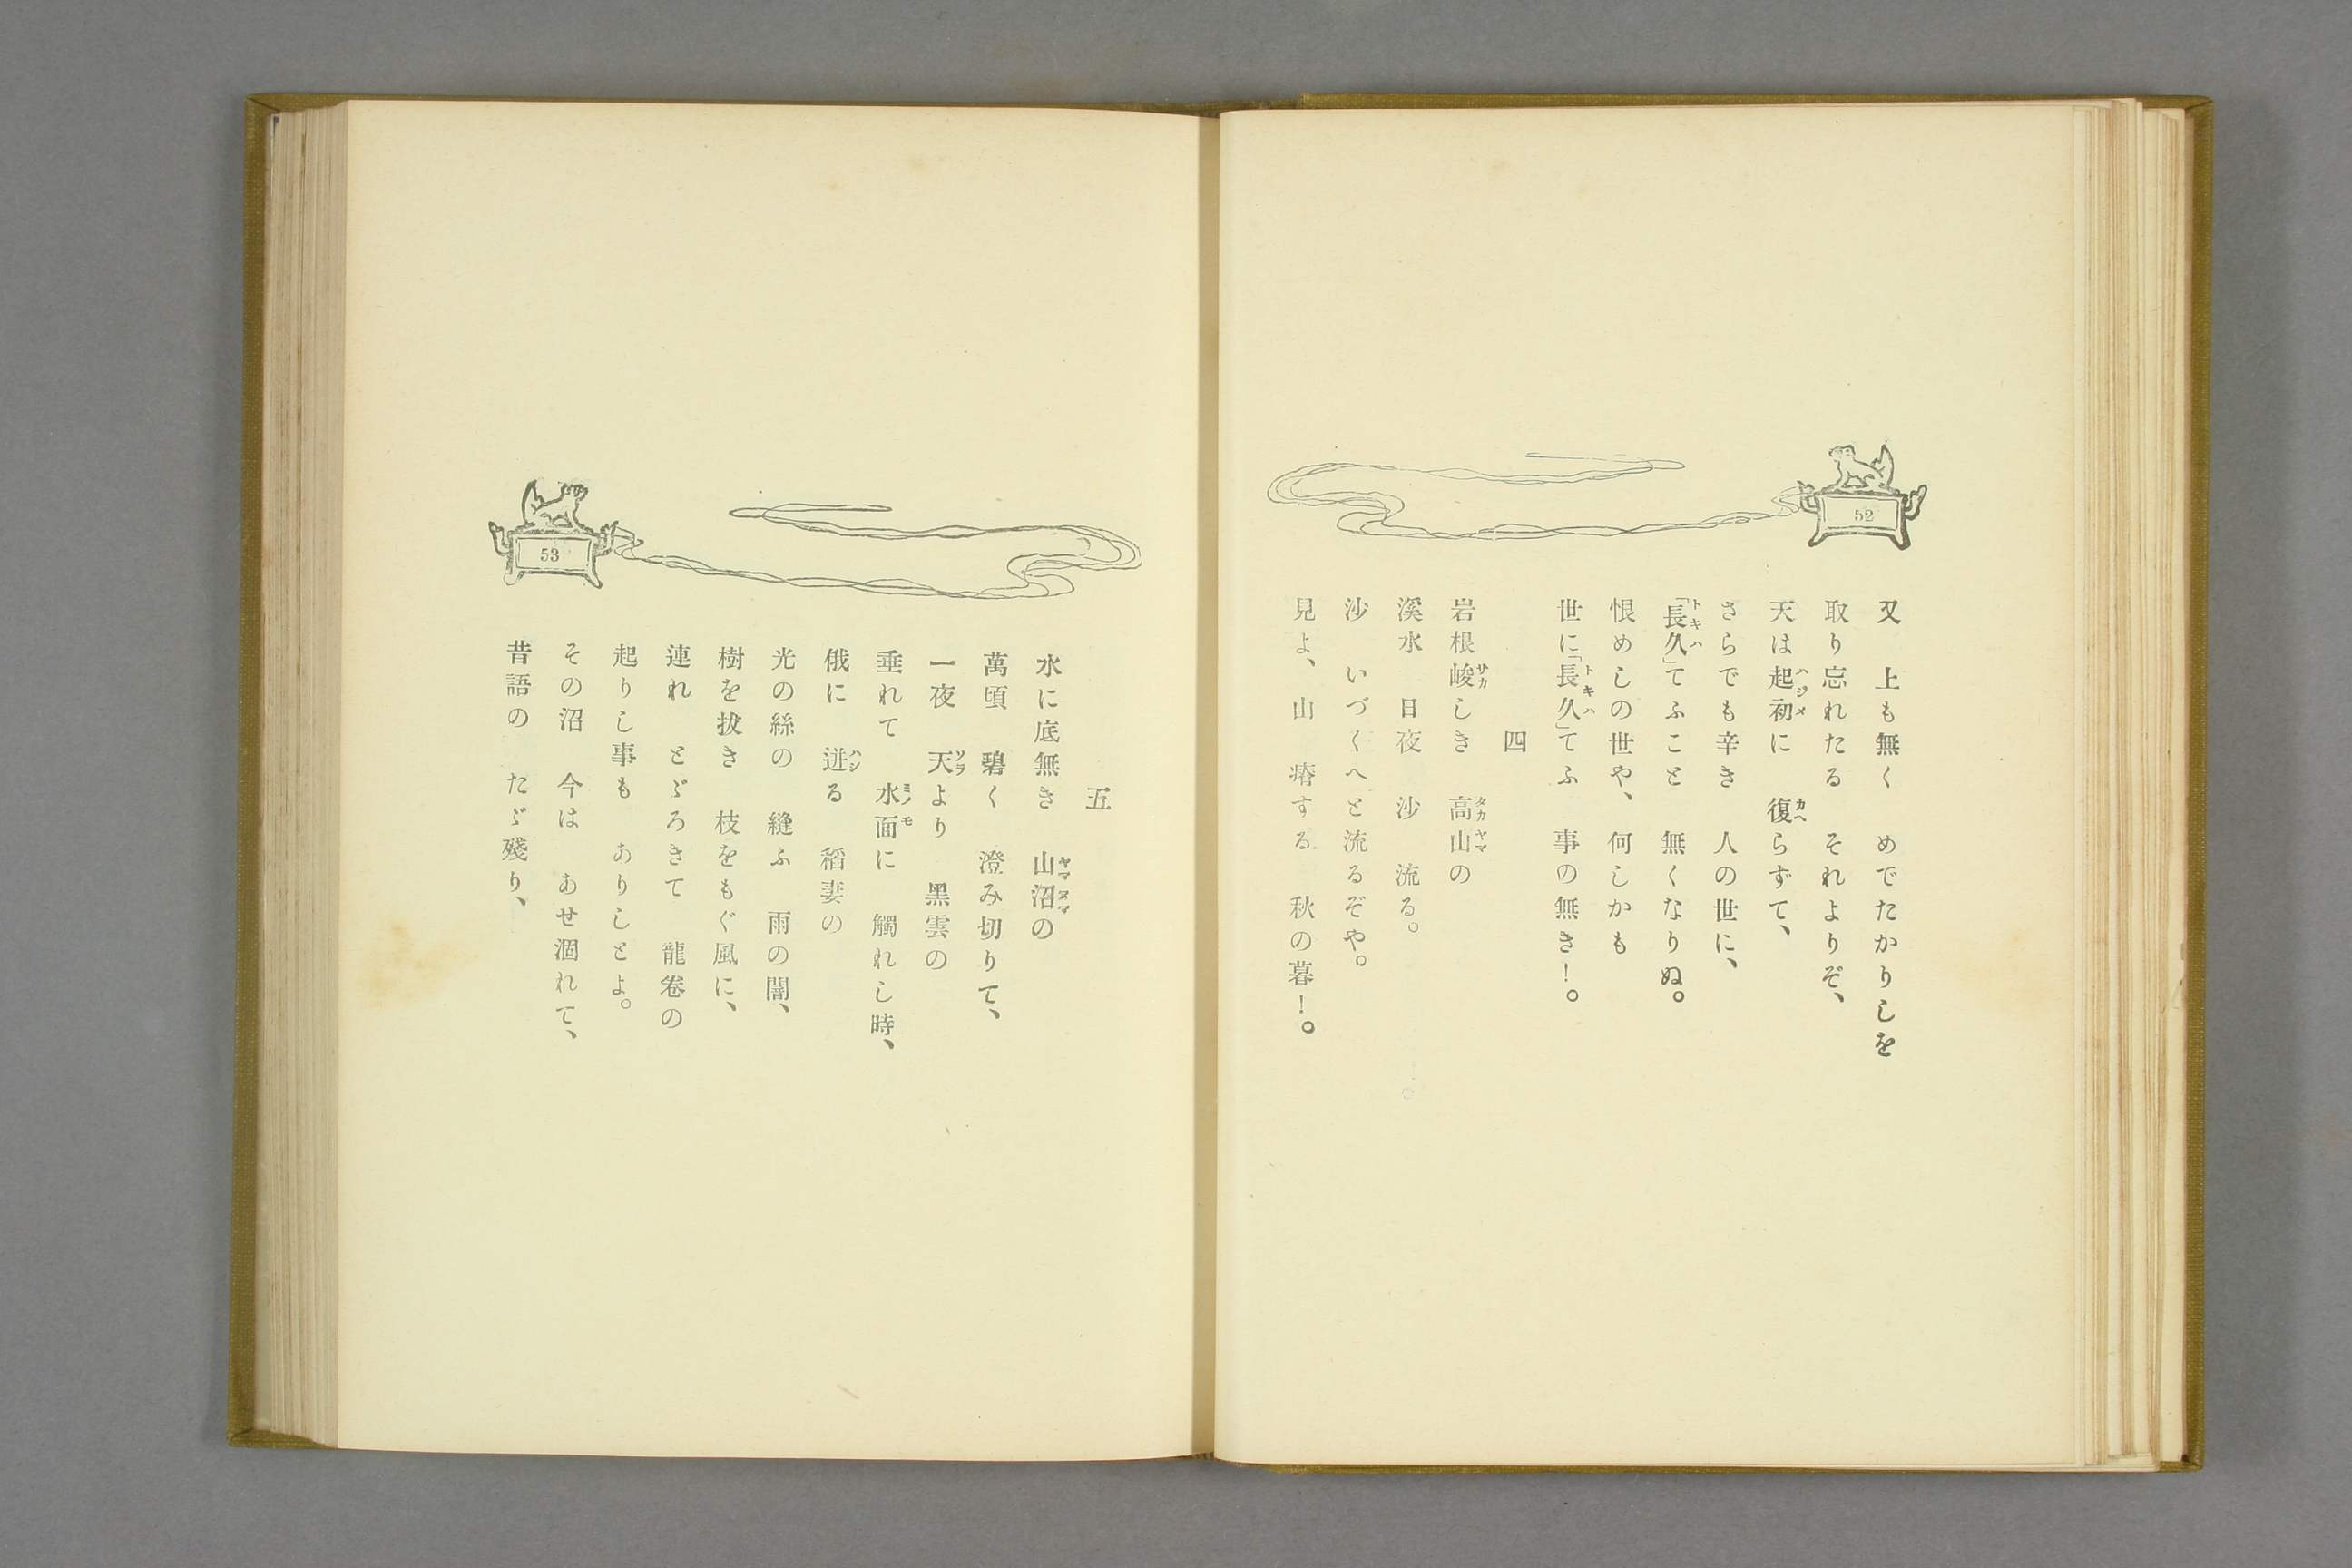 52
又　上も無く　めでたかりしを
取り忘れたる　それよりぞ、
天は起初に　復らずて、
さらでも辛き　人の世に、
「長久」てふこと　無くなりぬ。
恨めしの世や、何しかも
世に「長久」てふ　事の無き！。
四
岩根峻しき　高山の
溪水　日夜　沙　流る。
沙　いづくへと流るぞや。
見よ、山　瘠する　秋の暮！。
53
五
水に底無き　山沼の
萬頃　碧く　澄み切りて、
一夜　天より　黑雲の
垂れて　水面に　觸れし時、
俄に　迸る　稻妻の
光の絲の　縫ふ　雨の闇、
樹を拔き　枝をもぐ風に、
連れ　とゞろきて　龍卷の
起りし事も　ありしとよ。
その沼　今は　あせ涸れて、
昔語の　たゞ殘り、